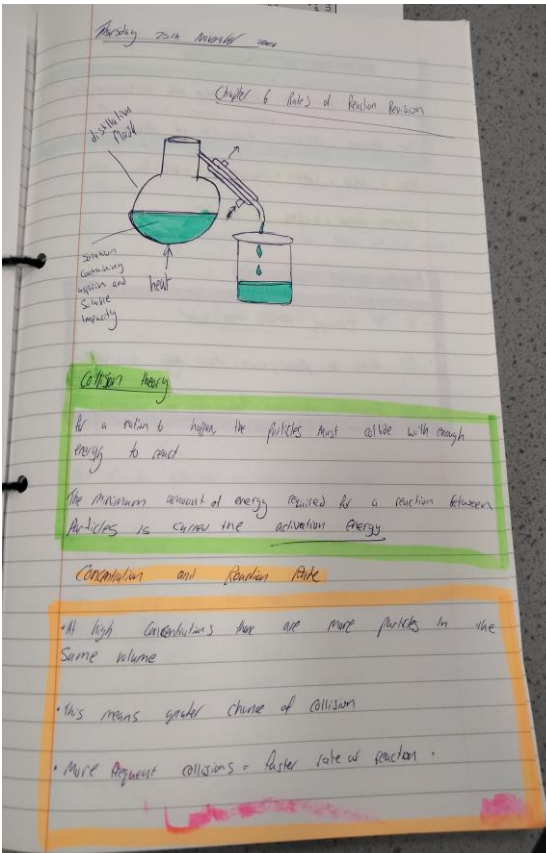 Thursday 25th November
Chapter 6 Rates of Reaction Revision
distillation
flask
Solution
containing
aspirin and
Soluble
Impurity
heat
Collision theory
for a to happen, the particles must collide with enough
energy to react
The minimum amount of energy required for a reaction between
Particles is the activation Energy
Concentration and Reaction Rate
• At high Concentrations there are more particles in the
Same volume
• This means greater chance of collision
• More frequent collisions = faster rate of reaction .